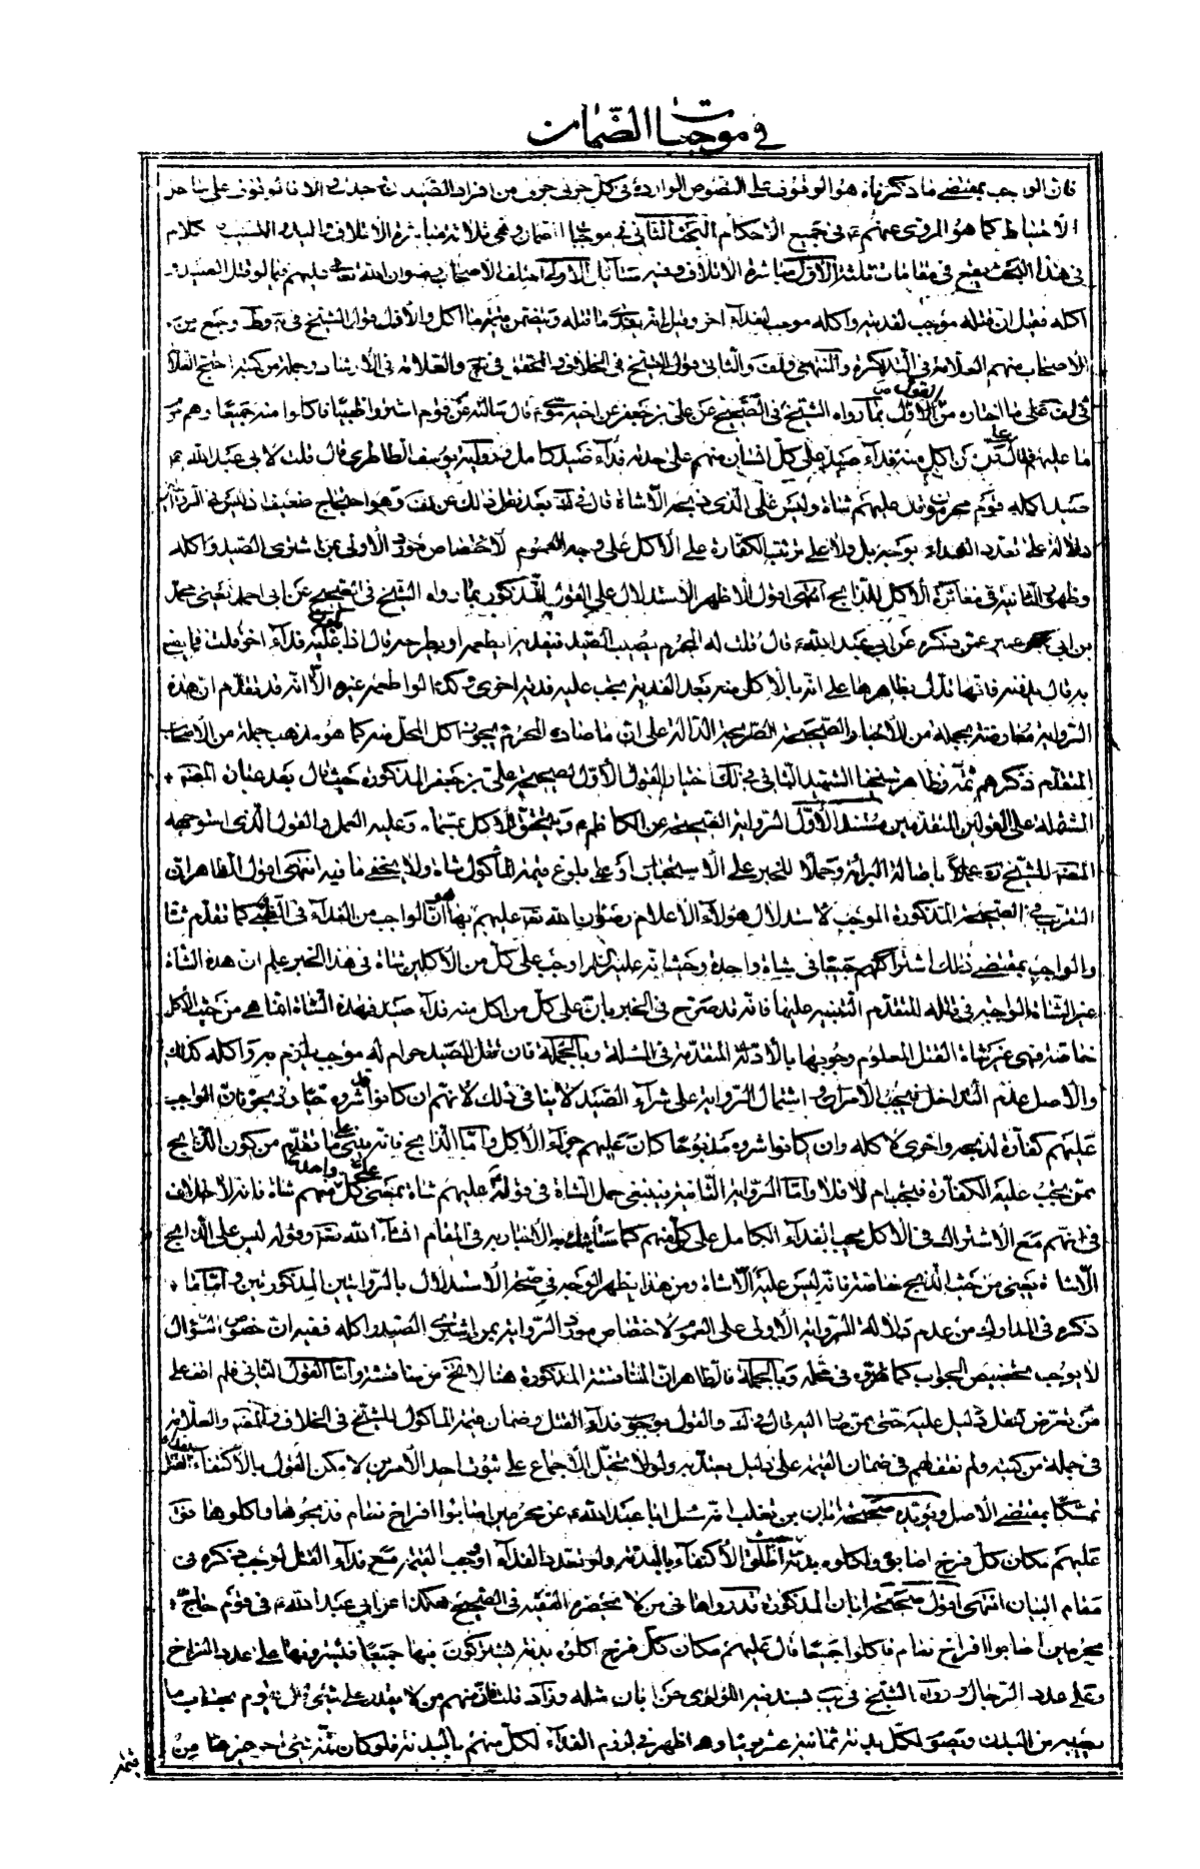 في موجبات الضمان
فان الواجب بمقتضى ما ذكرناه هو الوقوف على النصوص الواردة في كل جزئي جزئي من افراد الصيد فان حدث والا فالوقوف على ساحل
الاحتياط كما هو المروي عنهم ع في جميع الاحكام البحث الثاني في موجبات الضمان وهي ثلاثة مباشرة الاتلاف واليد والتسبيب فالكلام
في هذا البحث يقع في مقامات ثلثة الاول مباشرة الاتلاف وفيه مسائل الاولى اختلف الاصحاب رضوان الله تعالى عليهم فيما لو قتل الصيد و
اكله فقيل ان قتله موجب لفدية واكله موجب لفداء اخر وقيل انه يفدي ما قتله ويضمن قيمة ما اكل والاول قول الشيخ في يه وط وجمع من
الاصحاب منهم العلامة في التذكرة والمنتهى ولف والثاني قول الشيخ في الخلاف والمحقق في يع والعلامة في الارشاد وجملة من كتبه احتج العلامة
في لف على ما اختاره من القول الاول بما رواه الشيخ في الصحيح عن علي بن جعفر عن اخيه موسى ع قال سالته عن قوم اشتروا ظبيا فاكلوا منه جميعا وهم حرم
ما عليهم قال على كل من اكل منه فداء صيد على كل انسان منهم على حدته فداء صيد كامل ورواية يوسف الطاطري قال قلت لابي عبد الله ع
صيد اكله قوم محرمون قال عليهم شاة وليس على الذي ذبحه الا شاة قال في ك بعد نقل ذلك عن لف وهو احتجاج ضعيف اذ ليس في الرواية الاولى
دلالة على تعدد الفداء بوجه بل ولا على ترتب الكفارة على الاكل على وجه العموم لاختصاص مورد الاولى بمن اشترى الصيد واكله
وظهور الثانية في مغائرة الاكل للذابح انتهى اقول الاظهر الاستدلال على القول المذكور بما رواه الشيخ في الصحيح عن ابي احمد يعني محمد
بن ابي عمير عمن ذكره عن ابي عبد الله ع قال قلت له المحرم يصيب الصيد فيفديه ايطعمه او يطرحه قال اذا يكون عليه فداء اخر قلت فما يصنع
به قال يدفنه فانها تدل بظاهرها على انه بالاكل منه بعد الفدية يجب عليه فدية اخرى وكذا لو اطعمه غيره الا انه قد تقدم ان هذه
الرواية معارضة بجملة من الاخبار الصحيحة الصريحة الدالة على ان ما صاده المحرم يجوز اكل المحل منه كما هو مذهب جملة من الاصحاب
المتقدم ذكرهم ثمة وظاهر شيخنا الشهيد الثاني في لك اختيار القول الاول لصحيحة علي بن جعفر المذكورة حيث قال بعد عبارة المصنف
المشتملة على القولين المتقدمين مستند الاول الرواية الصحيحة عن الكاظم ع ويتحقق الاكل بمسماه وعليه العمل والقول الذي استوجهه
المصنف للشيخ ره عملا باصالة البراءة وحملا للخبر على الاستحباب او على بلوغ قيمة المأكول شاة ولا يخفى ما فيه انتهى اقول الظاهر ان
التقريب في الصحيحة المذكورة الموجب لاستدلال هؤلاء الاعلام رضوان الله تعالى عليهم بها هو ان الواجب من الفداء في الظبي كما تقدم شاة
والواجب بمقتضى ذلك اشتراكهم جميعا في شاة واحدة وحيث انه عليه السلام اوجب على كل من الاكلين شاة في هذا الخبر علم ان هذه الشاة
غير الشاة الواجبة في قتله المتقدم التنبيه عليها فانه قد صرح في الخبر بان على كل من اكل منه فداء صيد فهذه الشاة انما هي من حيث الاكل
خاصة فهي غير شاة القتل المعلوم وجوبها بالادلة المتقدمة في المسئلة وبالجملة فان قتل الصيد حرام له موجب يلزم به واكله كذلك
والاصل عدم التداخل فيجب الامران واشتمال الرواية على شراء الصيد لا ينافي ذلك لانهم ان كانوا شروه حيا وذبحوه فان الواجب
عليهم كفارة لذبحه واخرى لاكله وان كانوا شروه مذبوحا كان عليهم جزاء الاكل واما الذابح فانه يبنى على ما تقدم من كون الذابح
ممن يجب عليه الكفارة فيجب ام لا فلا واما الرواية الثانية فينبغي حمل الشاة في قوله عليهم شاة بمعنى على كل واحد منهم شاة فانه لا خلاف
في انهم مع الاشتراك في الاكل يجب الفداء الكامل على كل منهم كما ستأتيك به الاخبار في المقام انشاء الله تعالى وقوله ليس على الذابح
الا شاة يعني من حيث الذبح خاصة فانه ليس عليه الا شاة ومن هذا يظهر الوجه في صحة الاستدلال بالروايتين المذكورتين واما ما
ذكره في المدارك من عدم دلالة الرواية الاولى على العموم لاختصاص مورد الرواية بمن اشترى الصيد واكله ففيه ان خصوص السؤال
لا يوجب تخصيص الجواب كما قرروه في محله وبالجملة فالظاهر ان المناقشة المذكورة هنا لا تخلو من مناقشة واما القول الثاني فلم اقف على
من تعرض لنقل دليل عليه حتى ممن صار اليه قال في ك والقول بوجوب فداء القتل وضمان قيمة المأكول للشيخ في الخلاف والمصنف والعلامة
في جملة من كتبه ولم نقف لهم في ضمان القيمة على دليل يعتد به ولولا تخيل الاجماع على ثبوت احد الامرين لامكن القول بالاكتفاء بفداء القتل
تمسكا بمقتضى الاصل ويؤيده صحيحة ابان بن تغلب انه سئل ابا عبد الله ع عن محرمين اصابوا افراخ نعام فذبحوها فاكلوها فقال
عليهم مكان كل فرخ اصابوه واكلوه بدنة اطلق الاكتفاء بالبدنة ولو تعدد الفداء او وجب القيمة مع فداء القتل لوجب ذكره في
مقام البيان انتهى اقول صحيحة ابان المذكورة قد رواها في من لا يحضره الفقيه في الصحيح هكذا عن ابي عبد الله ع في قوم حاج
محرمين اصابوا افراخ نعام فاكلوا جميعا قال عليهم مكان كل فرخ اكلوه بدنة يشتركون فيها جميعا فيشترونها على عدد الفراخ
وعلى عدد الرجال ورواه الشيخ في يب بسند فيه اللؤلؤي عن ابان مثله وزاد قلت فان منهم من لا يقدر على شيء قال يقوم بحساب ما
يصيبه من البدن ويصوم لكل بدنة ثمانية عشر يوما وهو اظهر في لزوم الفداء لكل منهم بالبدنة فلو كان ثمة شيء اخر غيرها من
قيمة